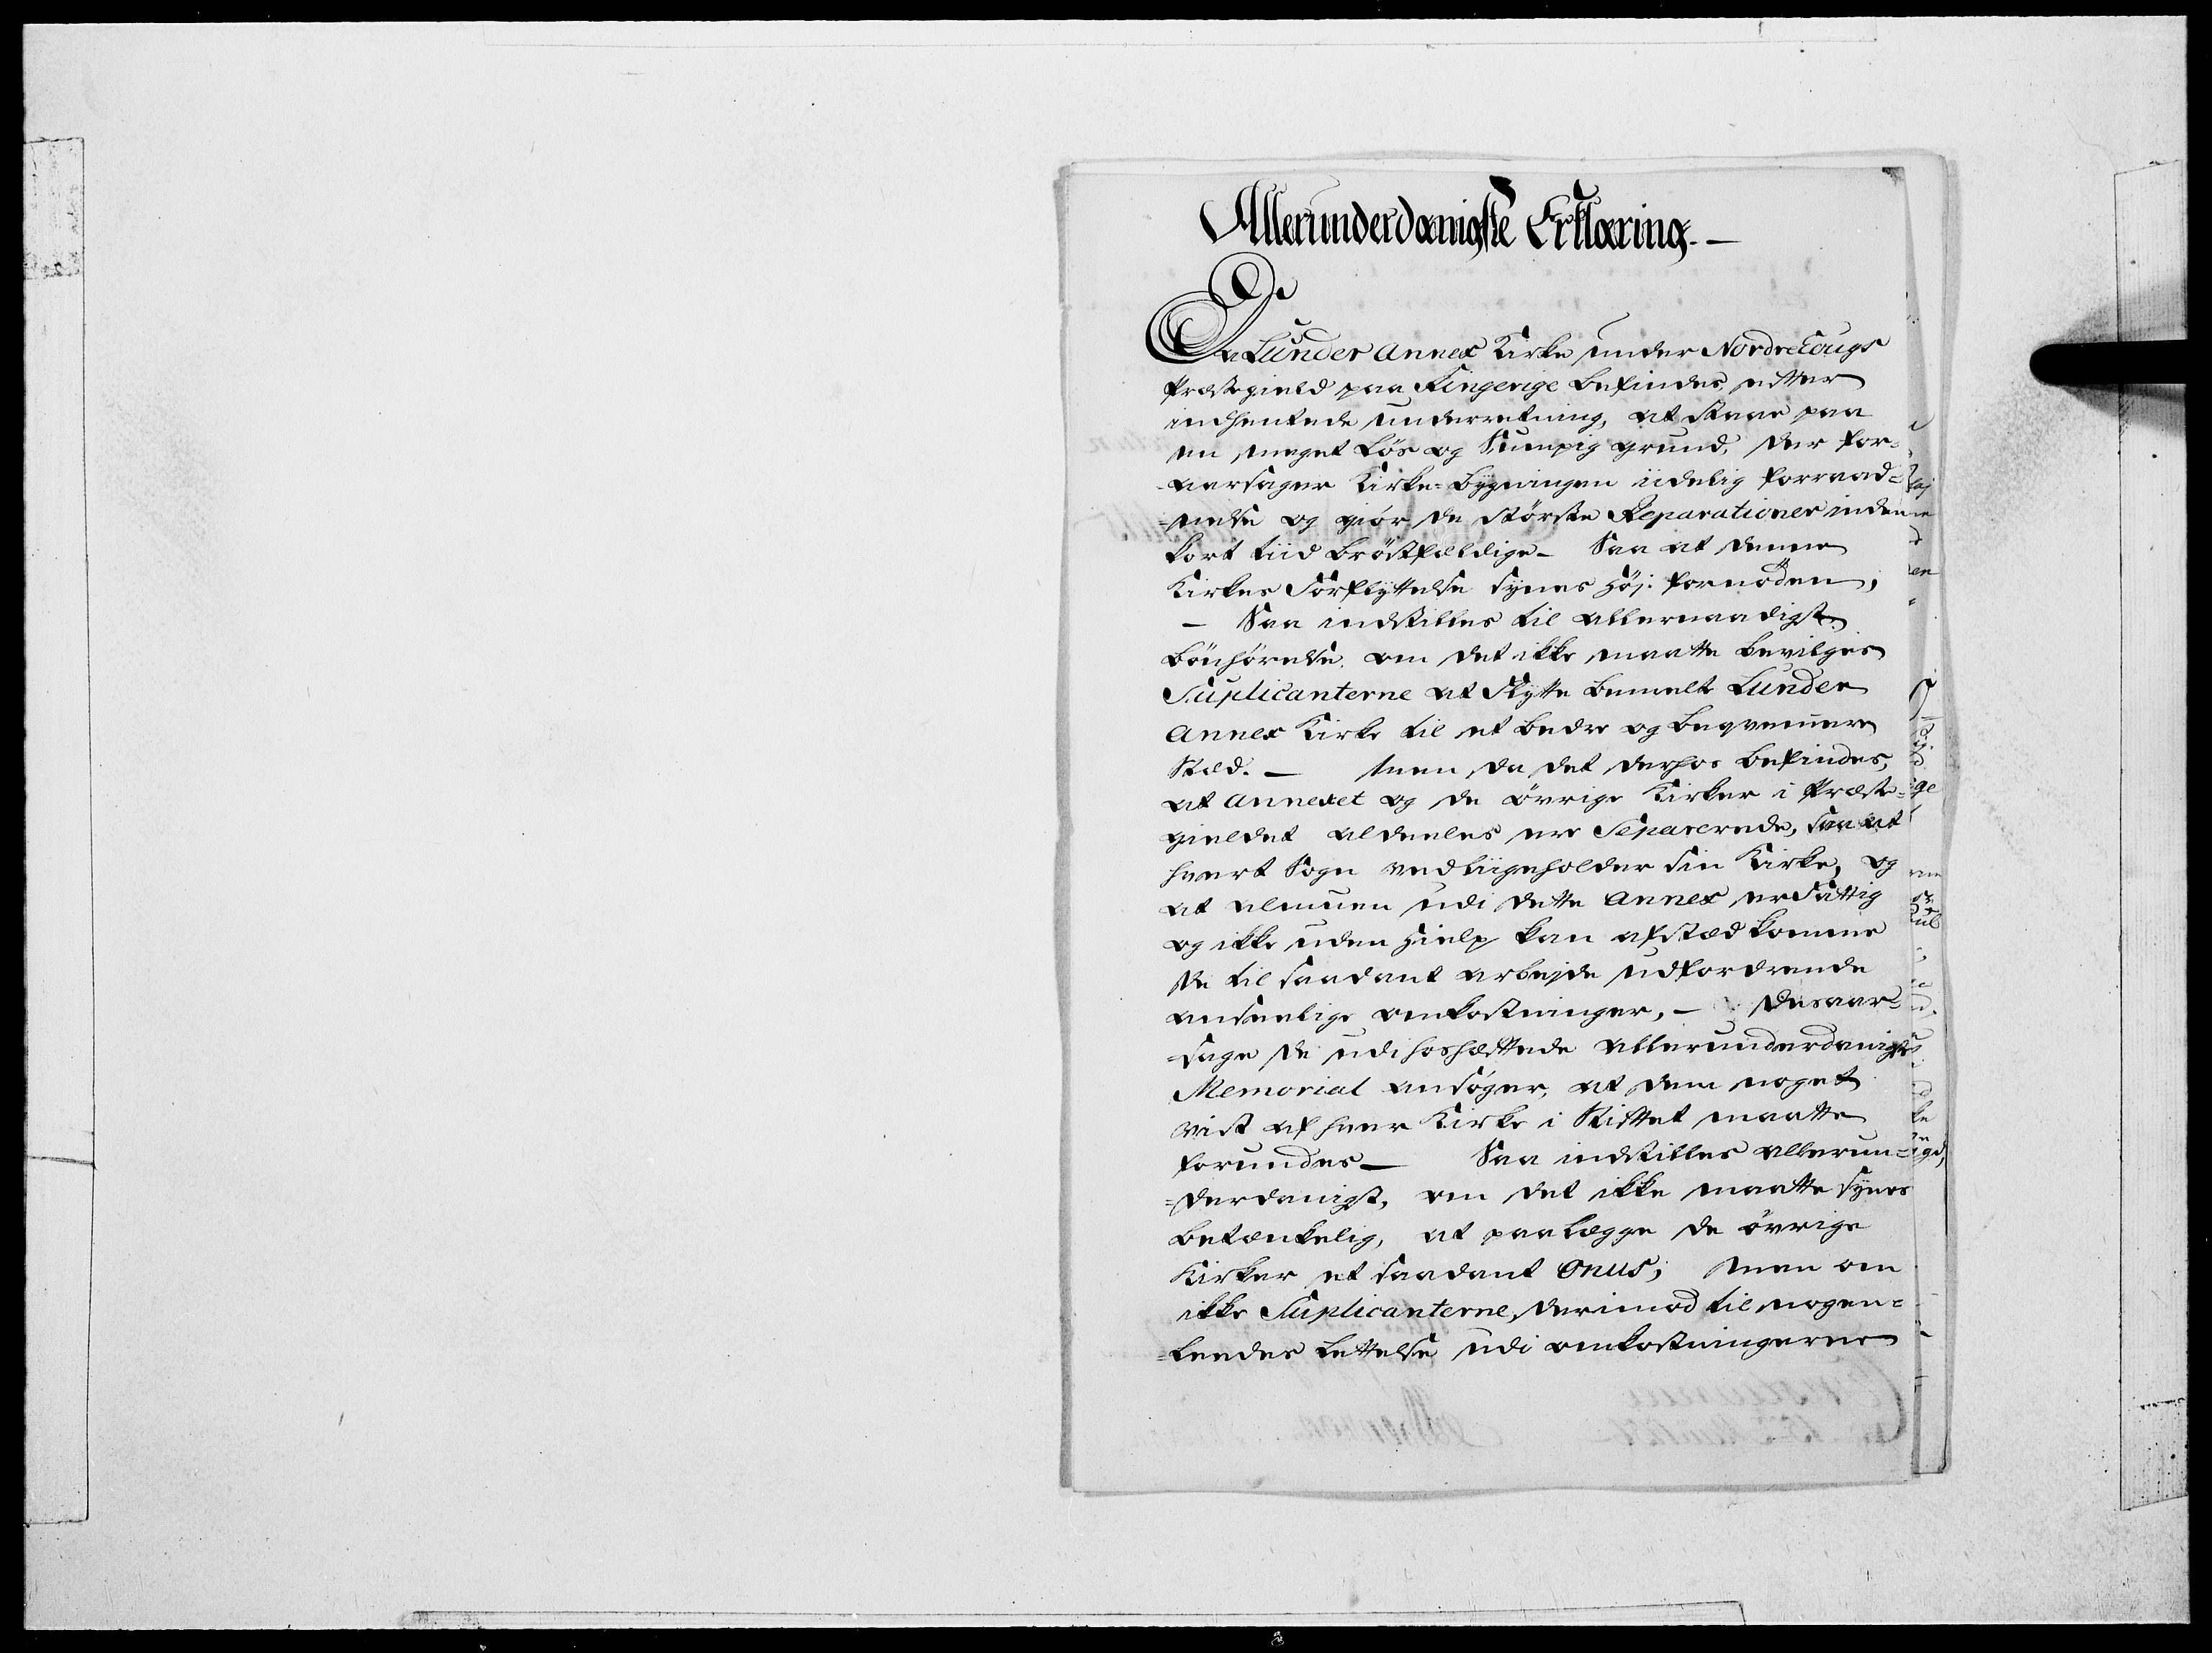 Allerunderdanigste Erklæring. —
Da Lunder Annex Kirke under Nordrehougs
Præstegield paa Ringerige befindes efter
indhentede underretning, at staae paa
en meget løs og Sumpig grund, der for=
aarsager Kirke-Bygningen idelig forraad=
=nelse og giør de største Reparationer inden
kort tiid brøstfældige — Saa at denne
Kirkes Forflyttelse synes høj fornøden,
— Saa indstilles til allernaadigst
bønhørelse. om det ikke maatte bevilges
Suplicanterne at flytte bemelte Lunder
Annex Kirke til et bedre og beqvemmere
Stæd. — Men da det derhos befindes,
at Annexet og de øvrige Kirker i Præste=
gieldet aldeeles ere Separerede, saa at
hvert Sogn vedligeholder sin Kirke, og
at almuen udi dette Annex er fattig
og ikke uden hielp kan afstædkomme
de til saadant arbejde udfordrende
anseelige omkostninger, — desaar=
=sage de udi hoshæftede allerunderdanigste
Memorial ansøger, at dem noget
vist af hver Kirke i Stiftet maatte
forundes — Saa indstilles allerun=
=derdanigst, om det ikke maatte synes
betænkelig, at paalægge de øvrige
Kirker et saadant Onus; men om
ikke Suplicanterne, derimod til nogen=
=leedes lettelse udi omkostningerne